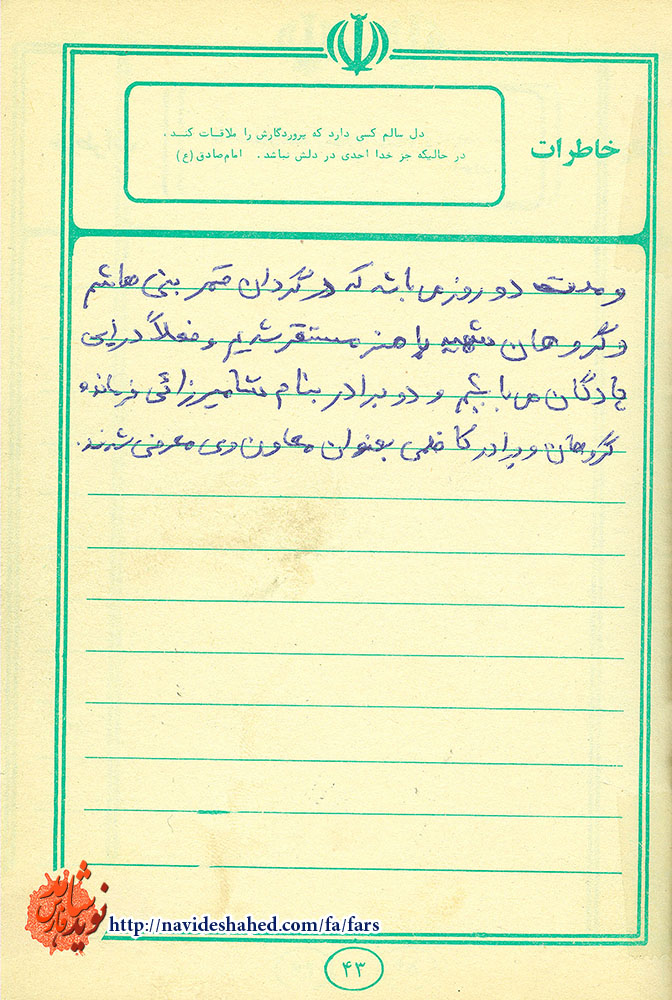 خاطرات
دل سالم کسی دارد که پروردگارش را ملاقات کند،
در حالیکه جز خدا احدی در دلش نباشد. امام صادق (ع)
و مدت دو روز می باشد که در گردان قمر بنی هاشم
و گروهان شهید با هنر مستقر شدیم و فعلاً در این
پادگان می باشیم و دو برادر بنام شامیرزائی فرمانده
گروهان و برادر کاظمی بعنوان معاون وی معرفی شدند.
نوید شاهد فارس
http://navideshahed.com/fa/fars
۴۳